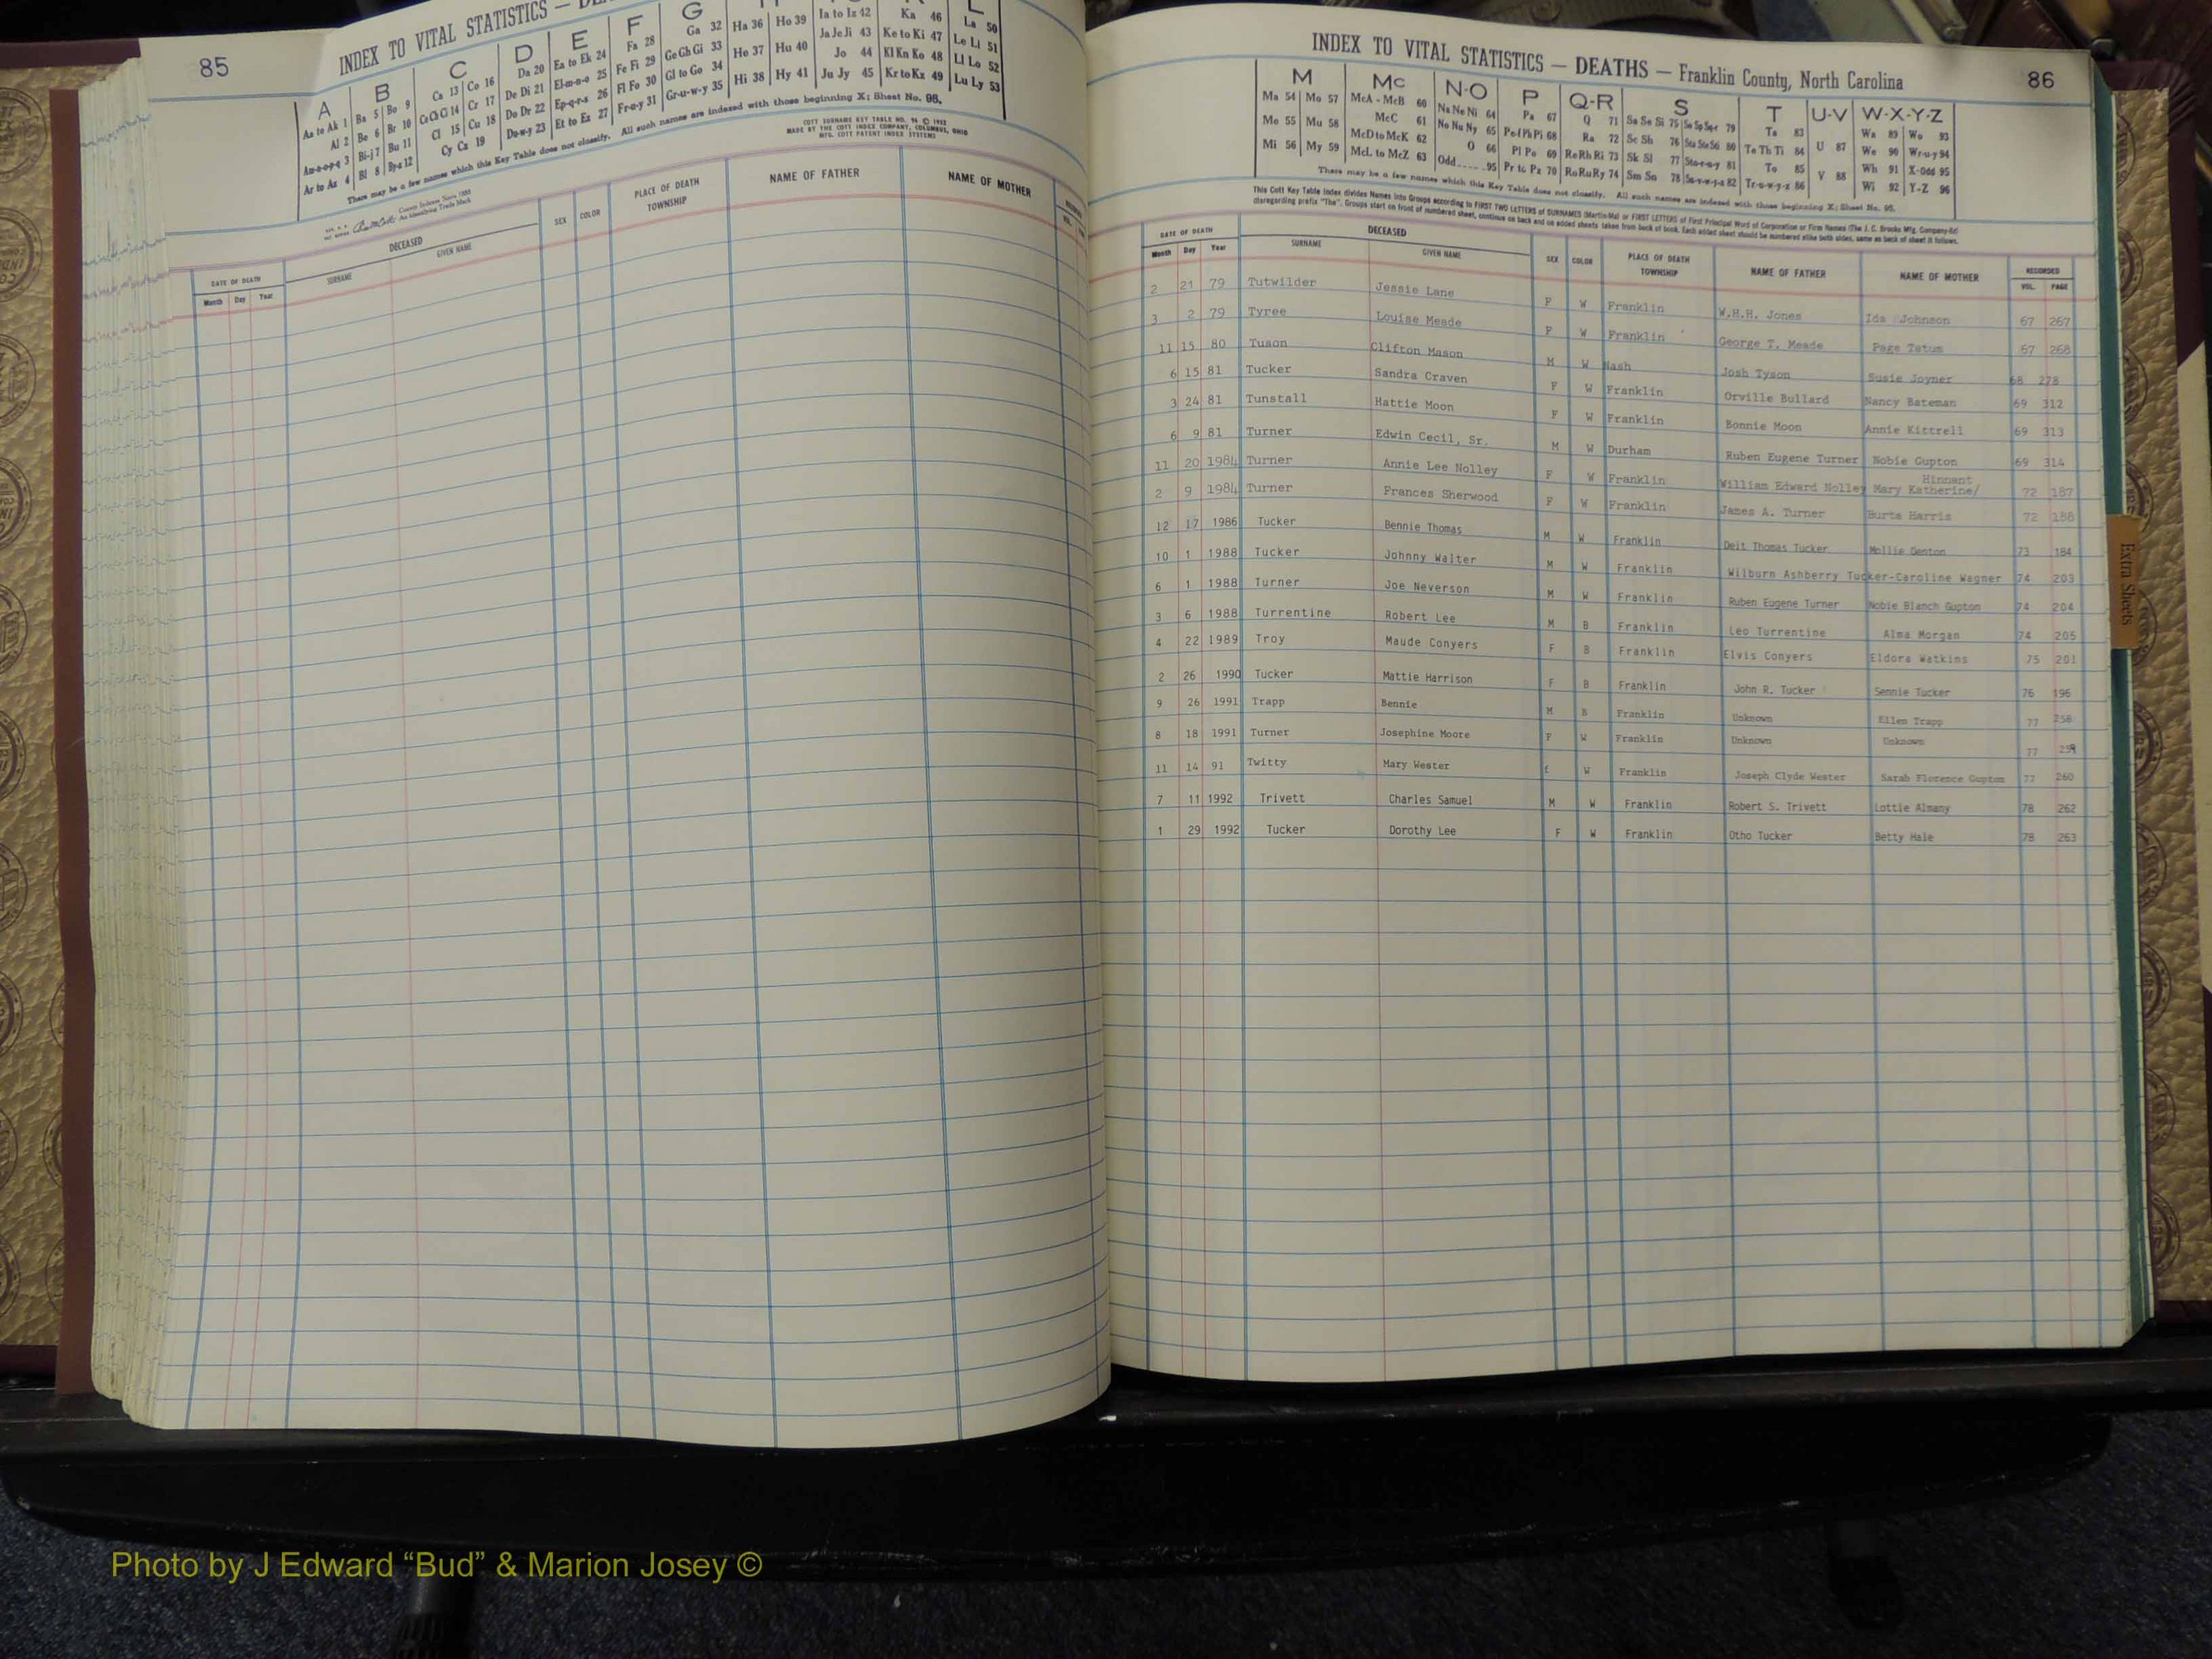 85
INDEX TO VITAL STATISTICS —
A B C D E F G
Aa to Ak 1 Ba 5 Bo 9 Ca 13 Co 16 Da 20 Ea to Ek 24 Fa 28 Ga 32 Ha 36 Ho 39 Ia to Iz 42 Ka 46 La 50
Al 2 Be 6 Br 10 Ce Ch Ci 14 Cr 17 De Di 21 El-m-n-o 25 Fe Fi 29 Ge Gh Gi 33 He 37 Hu 40 Ja Je Ji 43 Ke to Ki 47 Le Li 51
Am-n-o-p-q 3 Bi-j 7 Bu 11 Cl 15 Cu 18 Do Dr 22 Ep-q-r-s 26 Fl Fo 30 Gl to Go 34 Hi 38 Hy 41 Jo 44 Kl Kn Ko 48 Ll Lo 52
Ar to Az 4 Bl 8 By-z 12 Cy Cz 19 Du-w-y 23 Et to Ez 27 Fr-u-y 31 Gr-u-w-y 35 Ju Jy 45 Kr to Kz 49 Lu Ly 53
There may be a few names which this Key Table does not classify. All such names are indexed with those beginning X; Sheet No. 95.
COTT SURNAME KEY TABLE NO. 96 © 1952
MADE BY THE COTT INDEX COMPANY, COLUMBUS, OHIO
MFG. COTT PATENT INDEX SYSTEMS
County Indexes Since 1888
An Identifying Trade Mark
DATE OF DEATH DECEASED SEX COLOR PLACE OF DEATH TOWNSHIP NAME OF FATHER NAME OF MOTHER
Month Day Year SURNAME GIVEN NAME
INDEX TO VITAL STATISTICS — DEATHS — Franklin County, North Carolina
86
M Mc N-O P Q-R S T U-V W-X-Y-Z
Ma 54 Mo 57 McA - McB 60 Na Ne Ni 64 Pa 67 Q 71 Sa Se Si 75 So Sp Sq-r 79 Ta 83 U 87 Wa 89 Wo 93
Me 55 Mu 58 McC 61 No Nu Ny 65 Pe Pf Ph Pi 68 Ra 72 Sc Sh 76 Sta Ste Sti 80 Te Th Ti 84 V 88 We 90 Wr-u-y 94
Mi 56 My 59 McD to McK 62 O 66 Pl Po 69 Re Rh Ri 73 Sk Sl 77 Sto-r-u-y 81 To 85 Wh 91 X-Odd 95
McL to McZ 63 Odd 95 Pr to Pz 70 Ro Ru Ry 74 Sm Sn 78 Su-v-w-y-z 82 Tr-u-w-y-z 86 Wi 92 Y-Z 96
There may be a few names which this Key Table does not classify. All such names are indexed with those beginning X; Sheet No. 95.
This Cott Key Table Index divides Names into Groups according to FIRST TWO LETTERS of SURNAMES (Martin-Ma) or FIRST LETTERS of First Principal Word of Corporation or Firm Names (The J. C. Brooks Mfg. Company-Br)
disregarding prefix "The". Groups start on front of numbered sheet, continue on back and on added sheets taken from back of book. Each added sheet should be numbered alike both sides, same as back of sheet it follows.
DATE OF DEATH DECEASED SEX COLOR PLACE OF DEATH TOWNSHIP NAME OF FATHER NAME OF MOTHER RECORDED
Month Day Year SURNAME GIVEN NAME VOL. PAGE
2 21 79 Tutwilder Jessie Lane F W Franklin W.H.H. Jones Ida Johnson 67 267
3 2 79 Tyree Louise Meade F W Franklin George T. Meade Page Tatum 67 268
11 15 80 Tuson Clifton Mason M W Nash Josh Tyson Susie Joyner 68 278
6 15 81 Tucker Sandra Craven F W Franklin Orville Bullard Nancy Bateman 69 312
3 24 81 Tunstall Hattie Moon F W Franklin Bonnie Moon Annie Kittrell 69 313
6 9 81 Turner Edwin Cecil, Sr. M W Durham Ruben Eugene Turner Nobie Gupton 69 314
11 20 1984 Turner Annie Lee Nolley F W Franklin William Edward Nolley Mary Katherine/ Hinnant 72 187
2 9 1984 Turner Frances Sherwood F W Franklin James A. Turner Burta Harris 72 188
12 17 1986 Tucker Bennie Thomas M W Franklin Deit Thomas Tucker Mollie Denton 73 184
10 1 1988 Tucker Johnny Walter M W Franklin Wilburn Ashberry Tucker-Caroline Wagner 74 203
6 1 1988 Turner Joe Neverson M W Franklin Ruben Eugene Turner Nobie Blanch Gupton 74 204
3 6 1988 Turrentine Robert Lee M B Franklin Leo Turrentine Alma Morgan 74 205
4 22 1989 Troy Maude Conyers F B Franklin Elvis Conyers Eldora Watkins 75 201
2 26 1990 Tucker Mattie Harrison F B Franklin John R. Tucker Sennie Tucker 76 196
9 26 1991 Trapp Bennie M B Franklin Unknown Ellen Trapp 77 258
8 18 1991 Turner Josephine Moore F W Franklin Unknown Unknown 77 259
11 14 91 Twitty Mary Wester f W Franklin Joseph Clyde Wester Sarah Florence Gupton 77 260
7 11 1992 Trivett Charles Samuel M W Franklin Robert S. Trivett Lottie Almany 78 262
1 29 1992 Tucker Dorothy Lee F W Franklin Otho Tucker Betty Hale 78 263
Extra Sheets
Photo by J Edward “Bud” & Marion Josey ©